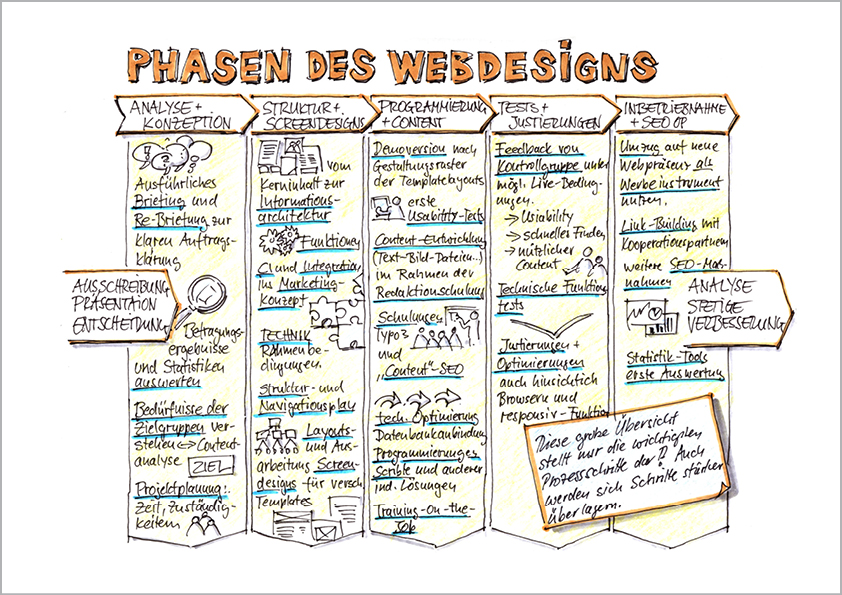 PHASEN DES WEBDESIGNS
ANALYSE +
KONZEPTION
Ausführliches
Briefing und
Re-Briefung zur
klaren Auftrags-
klärung
AUSSCHREIBUNG
PRÄSENTATION
ENTSCHEIDUNG
Befragungs-
ergebnisse
und Statistiken
auswerten
Bedürfnisse der
Zielgruppen ver-
stehen ↔ Content-
analyse ZIEL
Projektplanung:
Zeit, Zuständig-
keiten
STRUKTUR +
SCREENDESIGNS
vom
Kerninhalt zur
Informations-
architektur
Funktionen
CI und Integration
ins Marketing-
Konzept
TECHNIK
Rahmenbe-
dingungen.
Struktur- und
Navigationsplan
Layouts-
und Aus-
arbeitung Screen-
designs für versch.
Templates
PROGRAMMIERUNG
+ CONTENT
Demoversion nach
Gestaltungsraster
der Templatelayouts
erste
Usability-Tests
Content-Entwicklung
(Text-Bild-Dateien..)
im Rahmen der
Redaktionsschulung
Schulungen
Typo3
und
„Content"-SEO
tech. Optimierung
Datenbankanbindung
Programmierung
Scribte und anderer
ind. Lösungen
Training-On-the-
Job
TESTS +
JUSTIERUNGEN
Feedback von
Kontrollgruppe unter
mögl. Live-Beding-
ungen.
→ Usiability
→ schnelles Finden
→ nützlicher
Content
Technische Funktions
tests
Justierungen +
Optimierungen
auch hinsichtlich
Browsern und
responsiv-Funktion
INBETRIEBNAHME
+ SEO OP
Umzug auf neue
Webpräsenz als
Werbeinstrument
nutzen.
Link-Building mit
Kooperationspartnern
weitere SEO-Maß-
nahmen
ANALYSE
STETIGE
VERBESSERUNG
Statistik-Tools
erste Auswertung
Diese grobe Übersicht
stellt nur die wichtigsten
Prozessschritte dar !! Auch
werden sich Schritte stärker
überlagern.